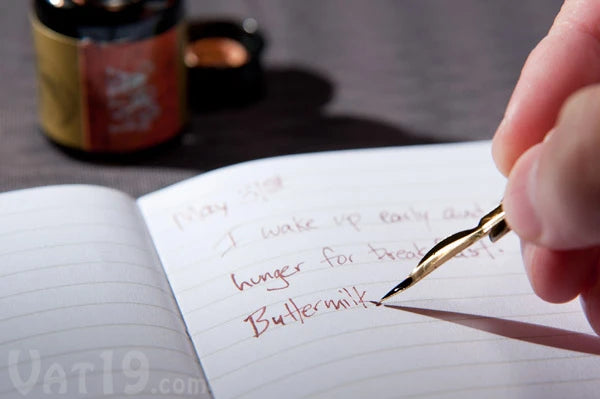 May 31st
I wake up early and
hunger for breakfast.
Buttermilk
Vat19.com